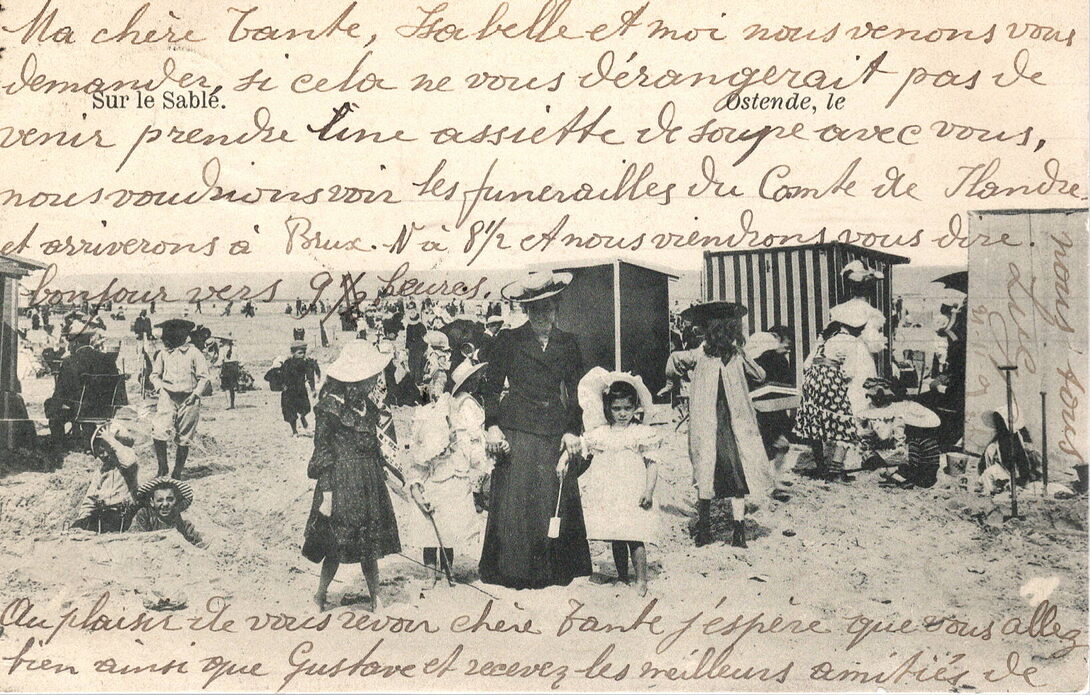 Ma chère Tante, Isabelle et moi nous venons vous
demander, si cela ne vous dérangerait pas de
Sur le Sable. Ostende, le
venir prendre une assiette de soupe avec vous,
nous voudrions voir les funerailles du Comte de Flandre
et arriverons à Brux. N à 8½ et nous viendrons vous dire
bonjour vers 9½ heures.
Au plaisir de vous revoir chère Tante j'espère que vous allez
bien ainsi que Gustave et recevez les meilleurs amitiés de
nous tous